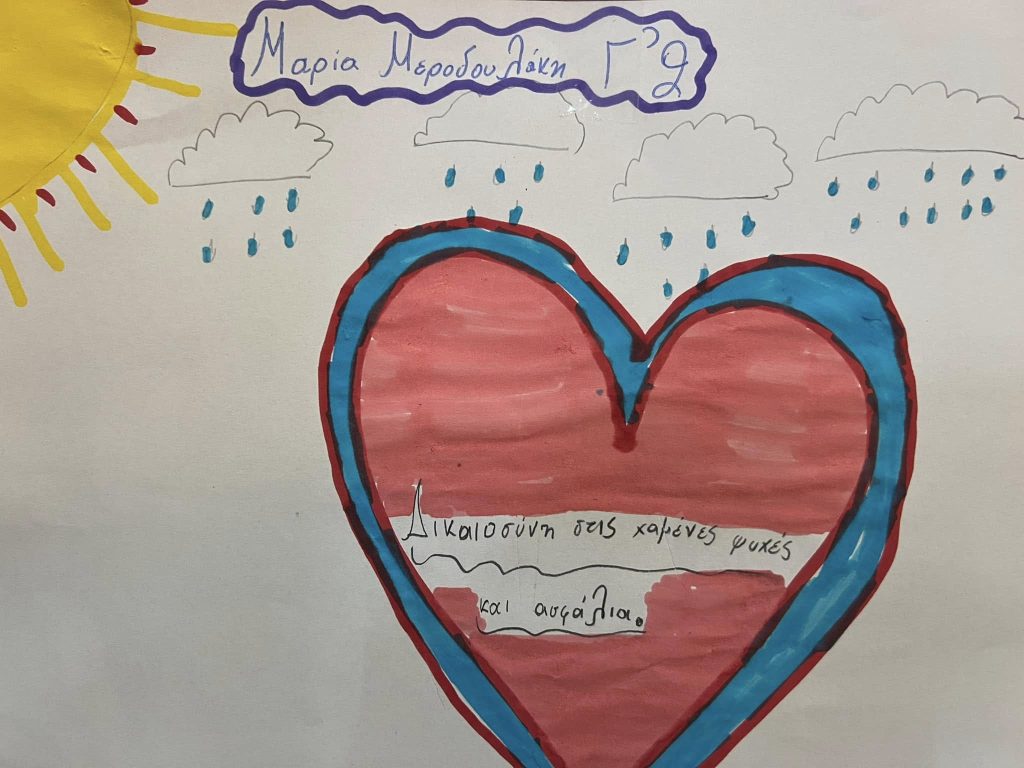 Μαρία Μεροδουλάκη Γ'2
Δικαιοσύνη στις χαμένες ψυχές
και ασφάλια.